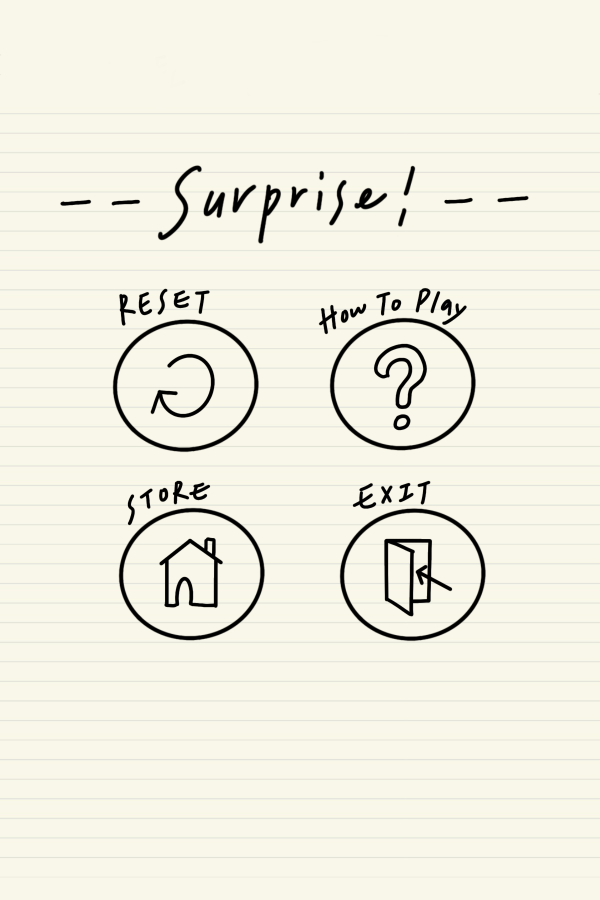 -- Surprise! --
RESET
How To Play
STORE
EXIT